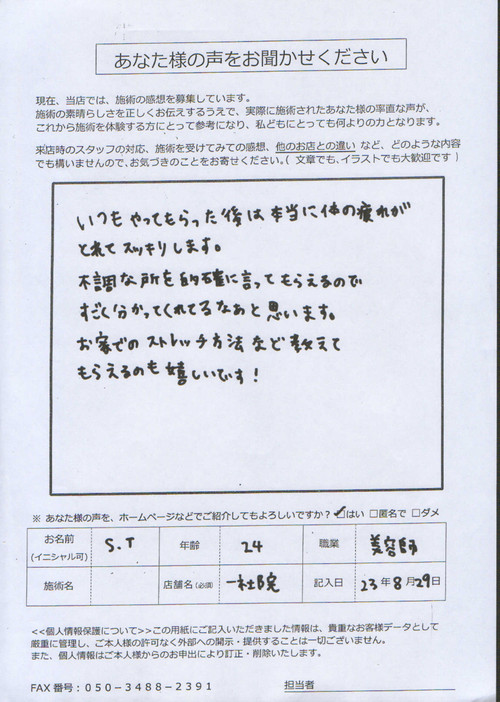 あなた様の声をお聞かせください
現在、当店では、施術の感想を募集しています。
施術の素晴らしさを正しくお伝えするうえで、実際に施術されたあなた様の率直な声が、
これから施術を体験する方にとって参考になり、私どもにとっても何よりの力となります。
来店時のスタッフの対応、施術を受けてみての感想、他のお店との違い など、どのような内容
でも構いませんので、お気づきのことをお寄せください。( 文章でも、イラストでも大歓迎です )
いつも やってもらった後は本当に体の疲れが
とれてスッキリします。
不調な所を的確に言ってもらえるので
すごく分かってくれてるなぁと思います。
お家でのストレッチ方法など教えて
もらえるのも嬉しいです!
※ あなた様の声を、ホームページなどでご紹介してもよろしいですか? ☑はい □匿名で □ダメ
お名前 (イニシャル可) S.T 年齢 24 職業 美容師
施術名 店舗名(必須) 一社院 記入日 23年 8月 29日
<<個人情報保護について>>この用紙にご記入いただきました情報は、貴重なお客様データとして
厳重に管理し、ご本人様の許可なく外部への開示・提供することは一切ございません。
また、個人情報はご本人様からのお申出により訂正・削除いたします。
FAX 番号:050-3488-2391 担当者